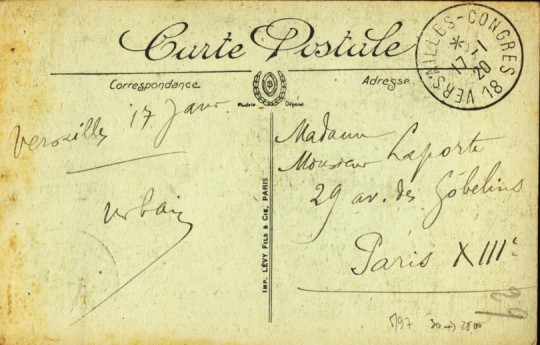 Carte Postale
Correspondance
Adresse
Modèle Déposé
VERSAILLES-CONGRES
* 17-1
20
18
Versailles 17 Janv
Urbain
Madame
Monsieur Laporte
29 av. des Gobelins
Paris XIIIe
IMP. LÉVY FILS & CIE, PARIS